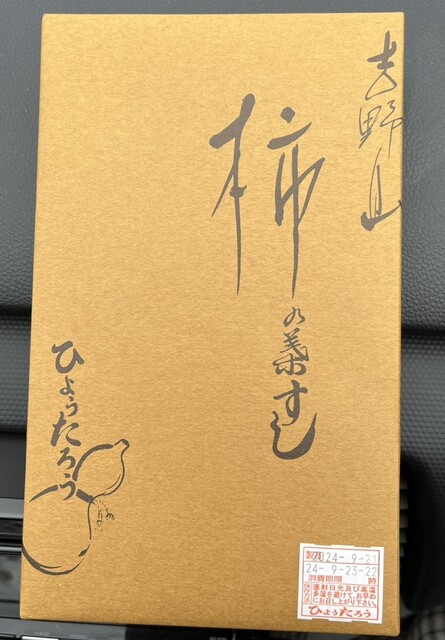 吉野山
柿の葉すし
ひょうたろう
製造24- 9-21
24- 9-23-22
消費期限 時
直射日光及び高温
多湿を避けて、お早め
にお召し上がり下さい。
ひょうたろう